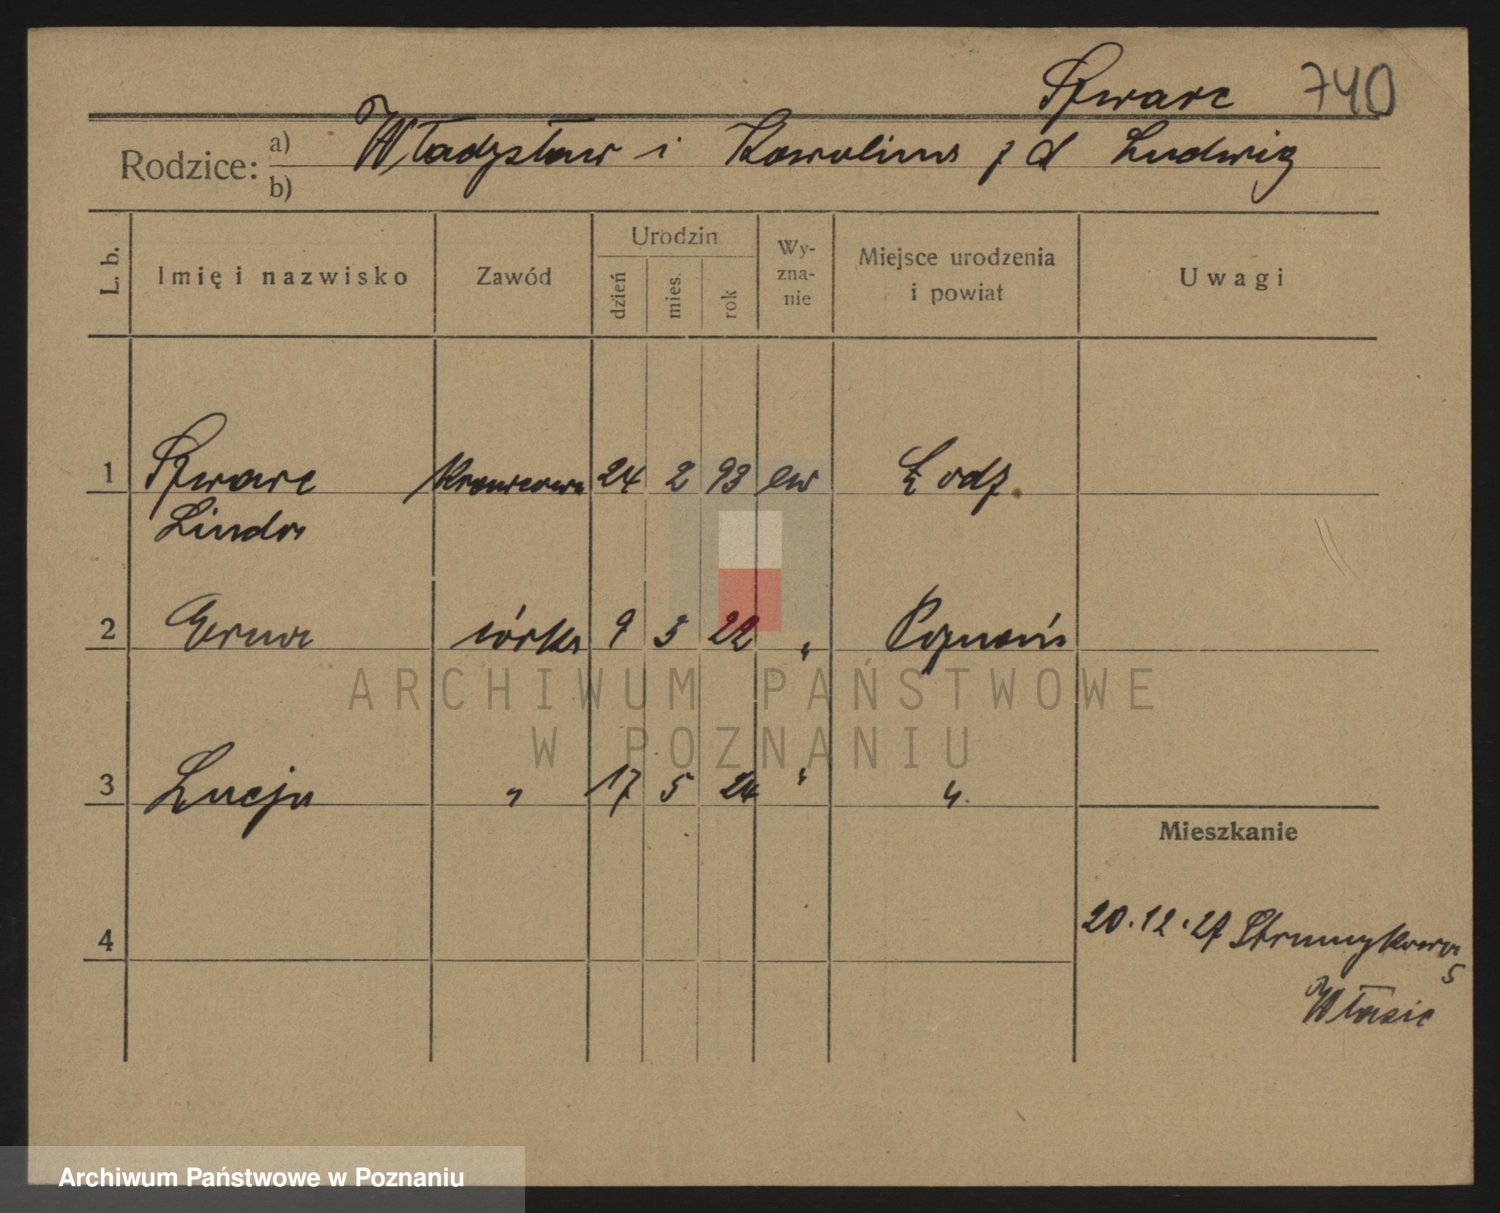 Szwarc 740
Rodzice: a) Władysław i Karolina z d Ludwig
b)
L. b. Imię i nazwisko Zawód Urodzin dzień mies. rok Wy-zna-nie Miejsce urodzenia i powiat Uwagi
1 Szwarc krawcowa 24 2 93 ew Łodz
Linda
2 Erna córka 9 3 22 „ Poznań
3 Łucja „ 17 5 24 „ „
Mieszkanie
4
20.12.27 Strumykowa
5
ARCHIWUM PAŃSTWOWE
W POZNANIU
Archiwum Państwowe w Poznaniu